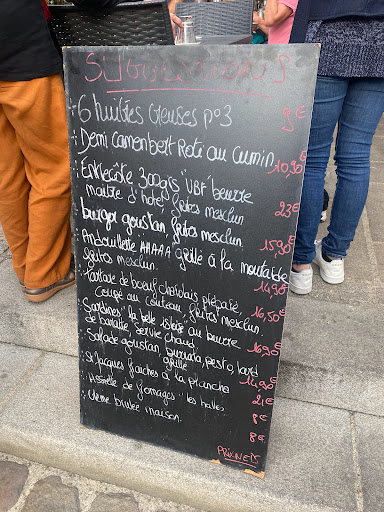 SUGGESTIONS
6 huîtres creuses n°3 9€
Demi camembert Roti au cumin 10,90€
Entrecôte 300grs "VBF" beurre
maitre d'hotel, frites mesclun 23€
burger goustan, frites mesclun. 15,90€
Andouillette AAAAA grillé à la moutarde
frites mesclun. 14,90€
Tartare de boeuf charolais préparé,
Coupé au couteau, frites mesclun. 16,50€
Sardines "la belle iloise" au beurre
de baratte, Servie chaud 16,90€
Salade goustan, burrata, pesto, lard
grillé 14,90€
St Jacques fraiches à la plancha 21€
Assiette de fromages les halles. 8€
Crème brulée maison. 8€
PRIX NETS